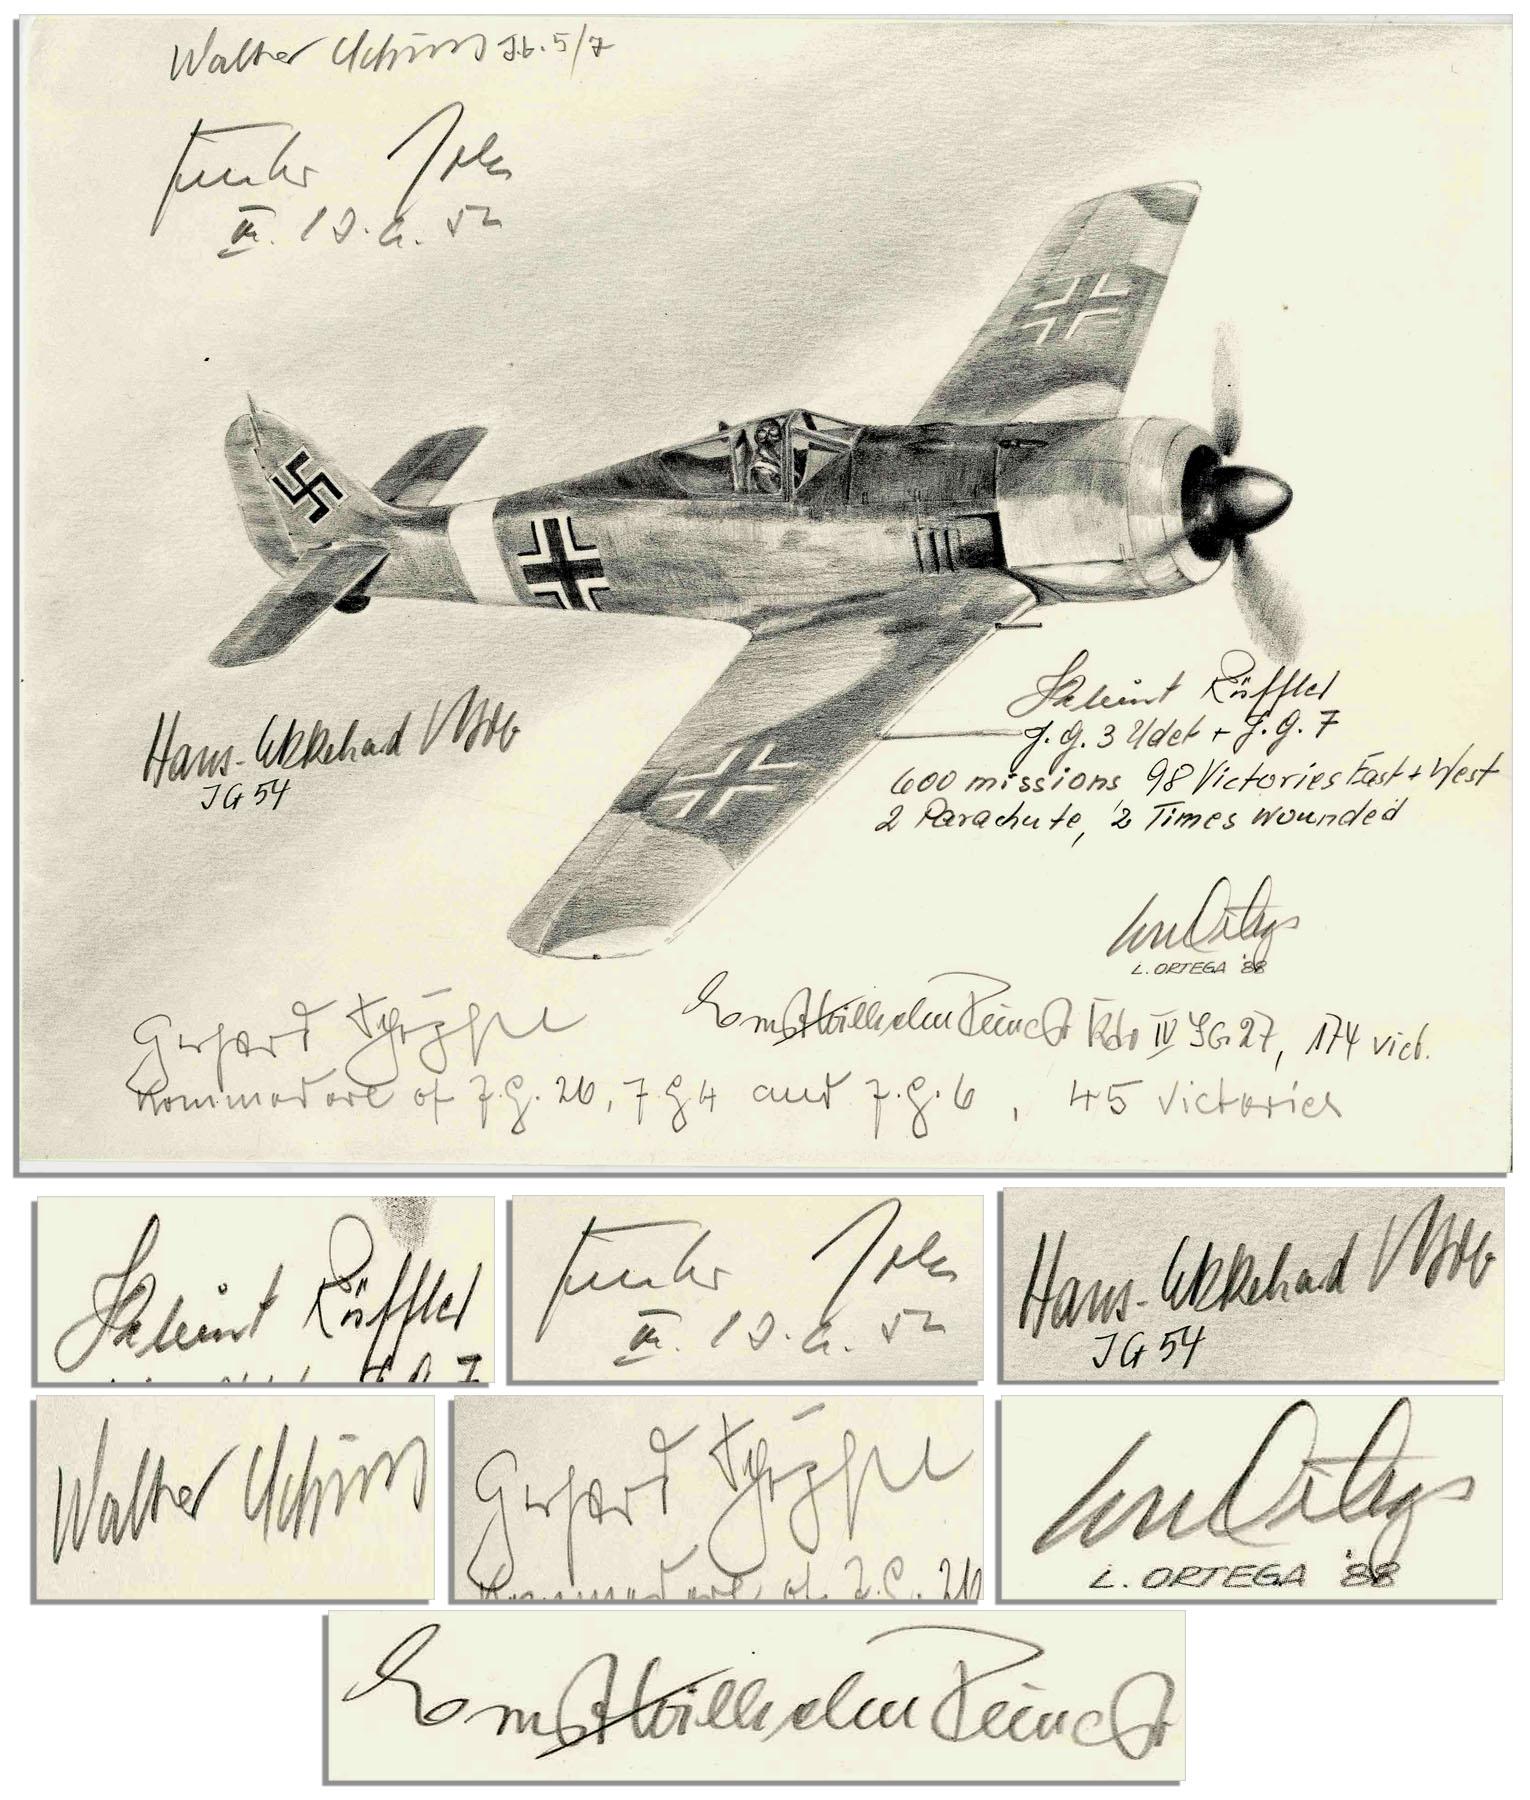 Walther Schuck J.G. 5/7
Günther Rall
III. J.G. 52
Hans-Ekkehard Bob
JG 54
Helmut Rüffler
J.G. 3 Udet + J.G. 7
600 missions 98 Victories East + West
2 Parachute, 2 Times wounded
L. ORTEGA '88
Ernst-Wilhelm Reinert Kdo IV JG. 27, 174 vict.
Gerhard Schöpfel
Kommodore of J.G. 26, J.G 4 and J.G. 6, 45 victories
Helmut Rüffler
Günther Rall
III. J.G. 52
Hans-Ekkehard Bob
JG 54
Walther Schuck
Gerhard Schöpfel
Kommodore of J.G. 26
L. ORTEGA '88
Ernst-Wilhelm Reinert